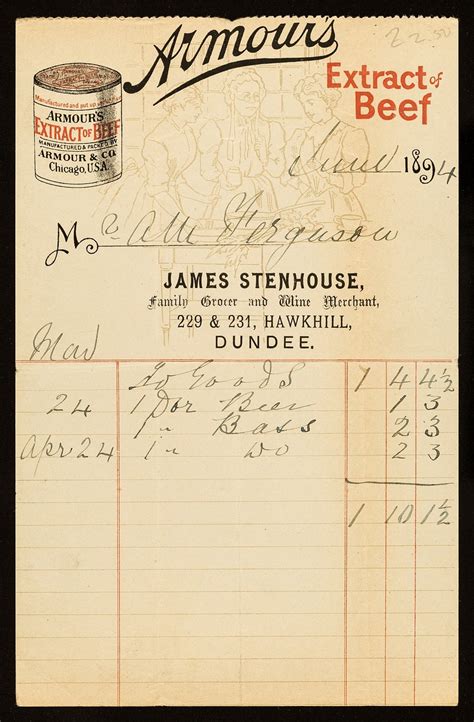 22.50
Armour's
Extract of
Beef
Manufactured and put up
ARMOUR'S
EXTRACT OF BEEF
MANUFACTURED & PACKED BY
ARMOUR & CO.
Chicago, U.S.A.
June 1894
Mr AM Ferguson
JAMES STENHOUSE,
Family Grocer and Wine Merchant,
229 & 231, HAWKHILL,
DUNDEE.
Mar
To Goods 1 4 4½
24 1 Doz Beer 1 3
1 " Bass 2 3
Apr 24 1 " Do 2 3
1 10 1½